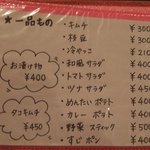 ★一品もの
・キムチ ¥300
・枝豆 ¥300
・冷やっこ ¥210
・和風サラダ ¥400
・トマトサラダ ¥400
・ツナサラダ ¥450
・めんたいポテト ¥400
・カレーポテト ¥400
・野菜スティック ¥500
・すじポン ¥400
お漬け物
¥400
タコキムチ
¥450